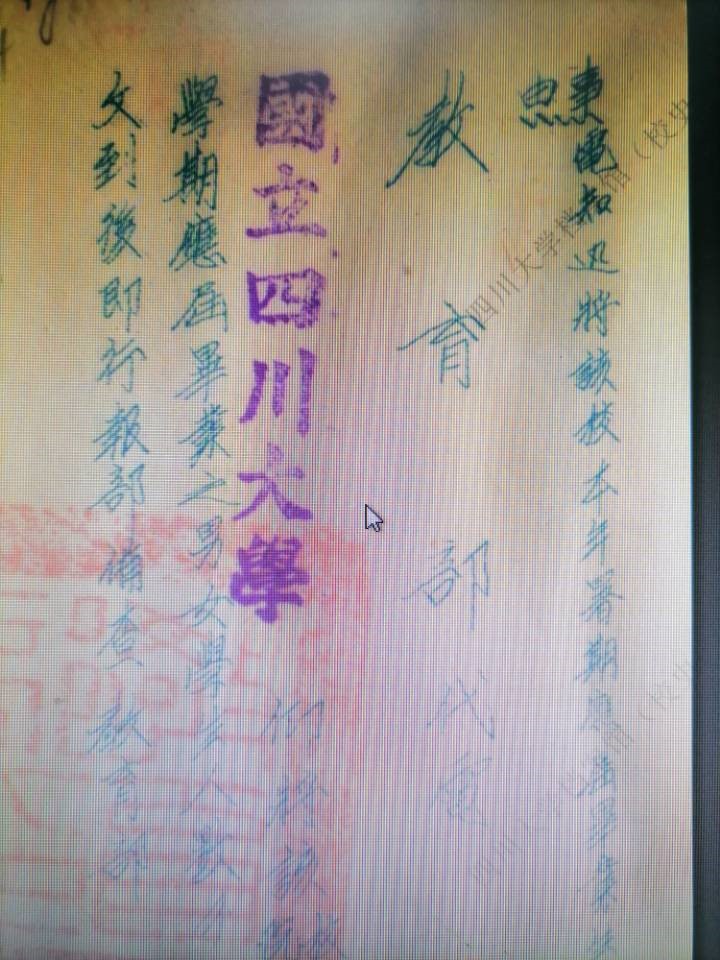 電知迅將該校本年暑期應屆畢業
教育部代電
國立四川大學 仰將該校
學期應屆畢業之男女學生人數
文到後即行報部備查教育部
四川大学档案馆（校史